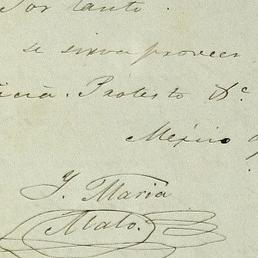 Por tanto.
se sirva proveer
icia. Protesto &c
México
Y. Maria
Malo.